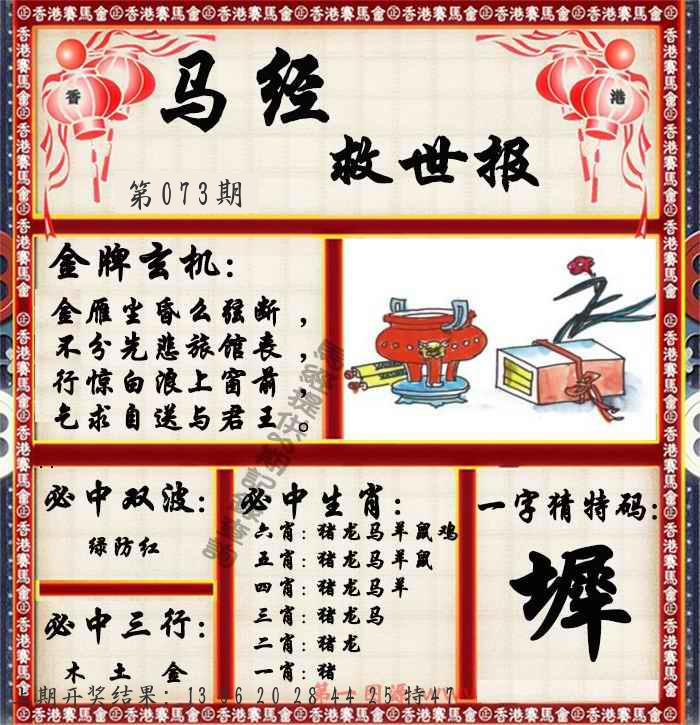 香港賽馬會
香
港
马经
救世报
第073期
金牌玄机:
金雁尘昏么弦断，
不分先悲旅馆丧，
行惊白浪上窗前，
乞求自送与君王。
必中双波:
绿防红
必中三行:
木 土 金
必中生肖:
六肖:猪龙马羊鼠鸡
五肖:猪龙马羊鼠
四肖:猪龙马羊
三肖:猪龙马
二肖:猪龙
一肖:猪
一字猜特码:
墀
期开奖结果: 13 36 20 28 44 25 特47